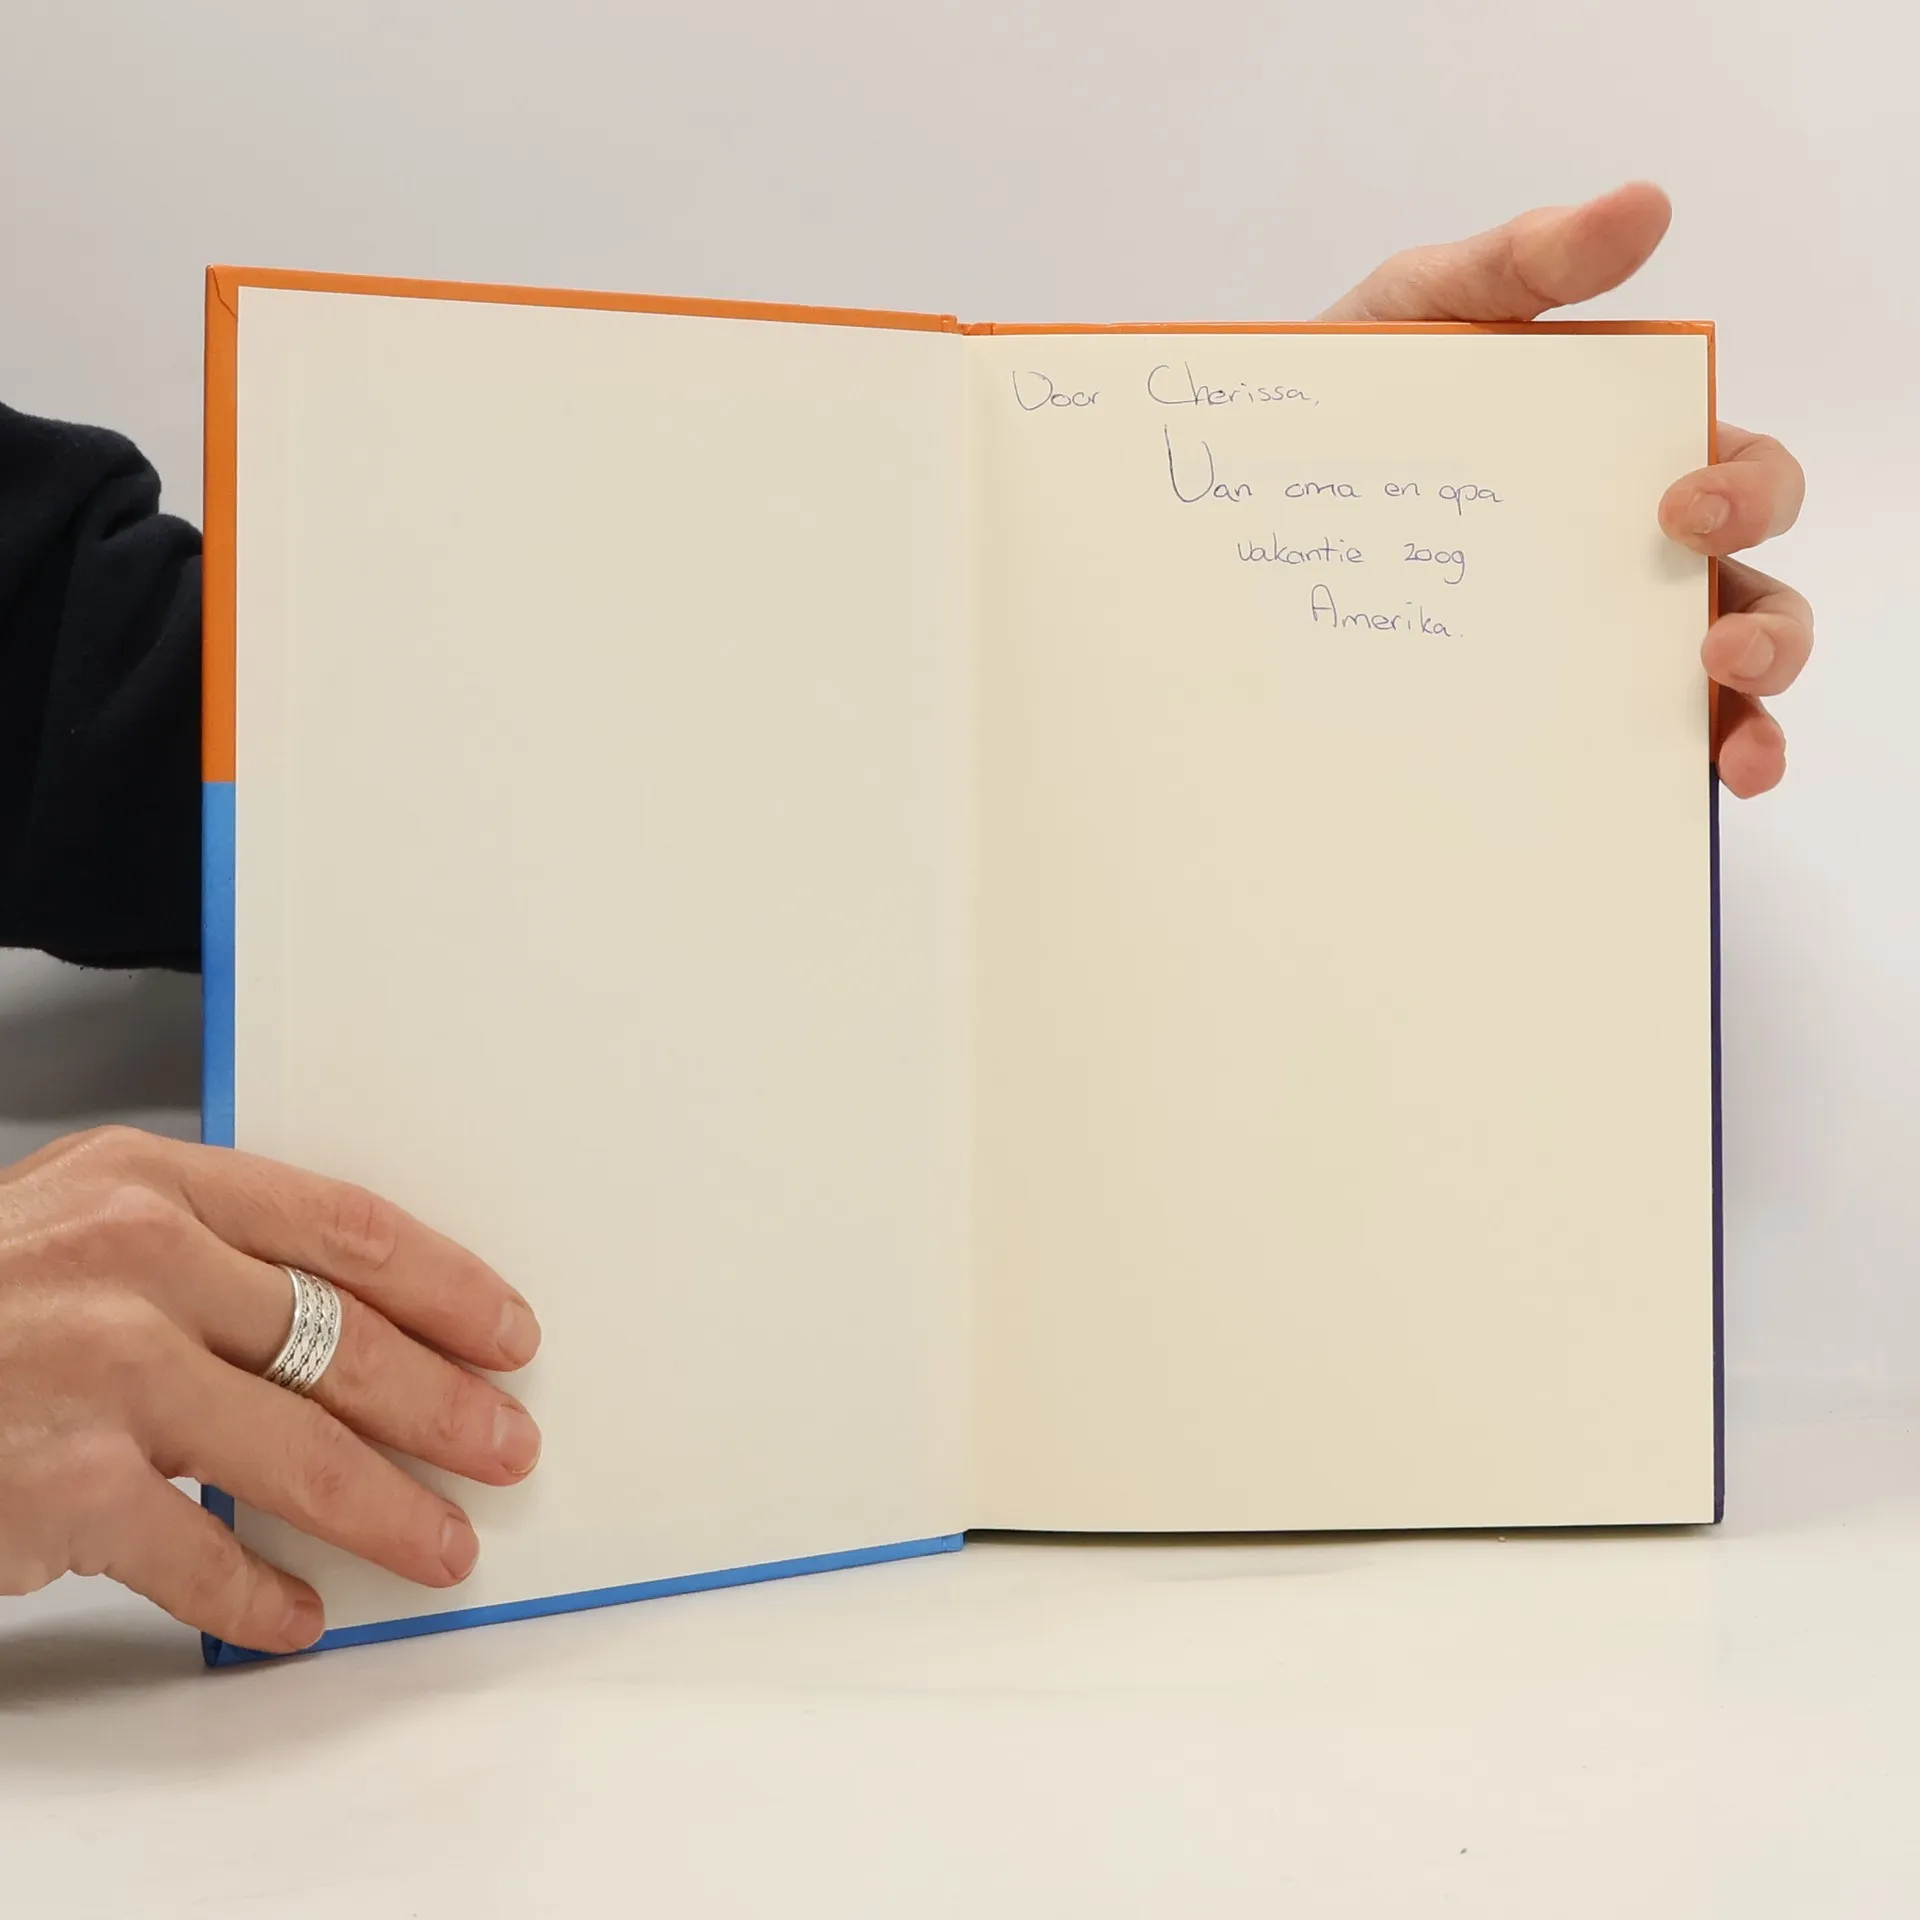 Voor Cherissa,
Van oma en opa
vakantie 2009
Amerika.